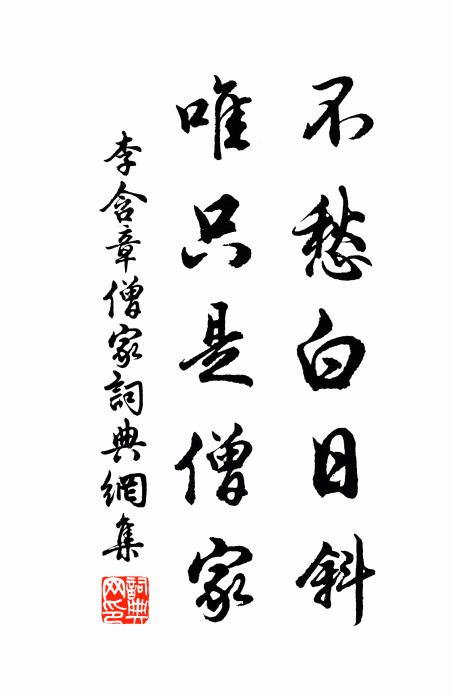 不愁白日斜
唯只是僧家
李含章僧家詞典網集
詞典網印